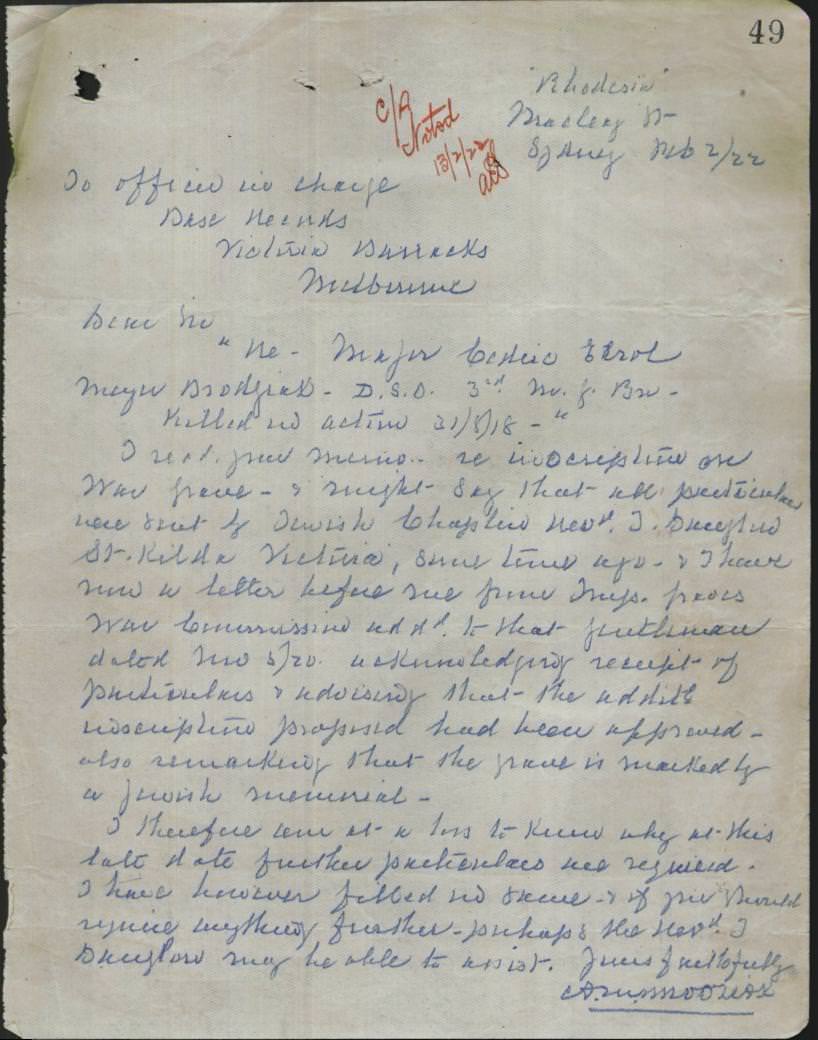 49
"Rhodesia"
Bradley St
Sydney Feb 2/22
C/R
Noted
13/2/22
To officer in charge
Base Records
Victoria Barracks
Melbourne
Dear Sir
"Re - Major Cedric Errol
Meyer Brodziak - D.S.O. 3rd M. G. Bn -
Killed in action 31/8/18 - "
I recd. your memo - re inscription on
War grave - & might say that all particulars
were sent by Jewish Chaplin Revd. J. Danglow
St. Kilda Victoria, some time ago - & I have
now a letter before me from Imp. graves
War Commission addd. to that gentleman
dated 5/20. acknowledging receipt of
particulars & advising that the addit
inscription proposed had been approved -
also remarking that the grave is marked by
a Jewish memorial -
I therefore am at a loss to know why at this
late date further particulars are required.
I have however filled in same - & if you should
require anything further - perhaps the Revd. J
Danglow may be able to assist. Yours faithfully